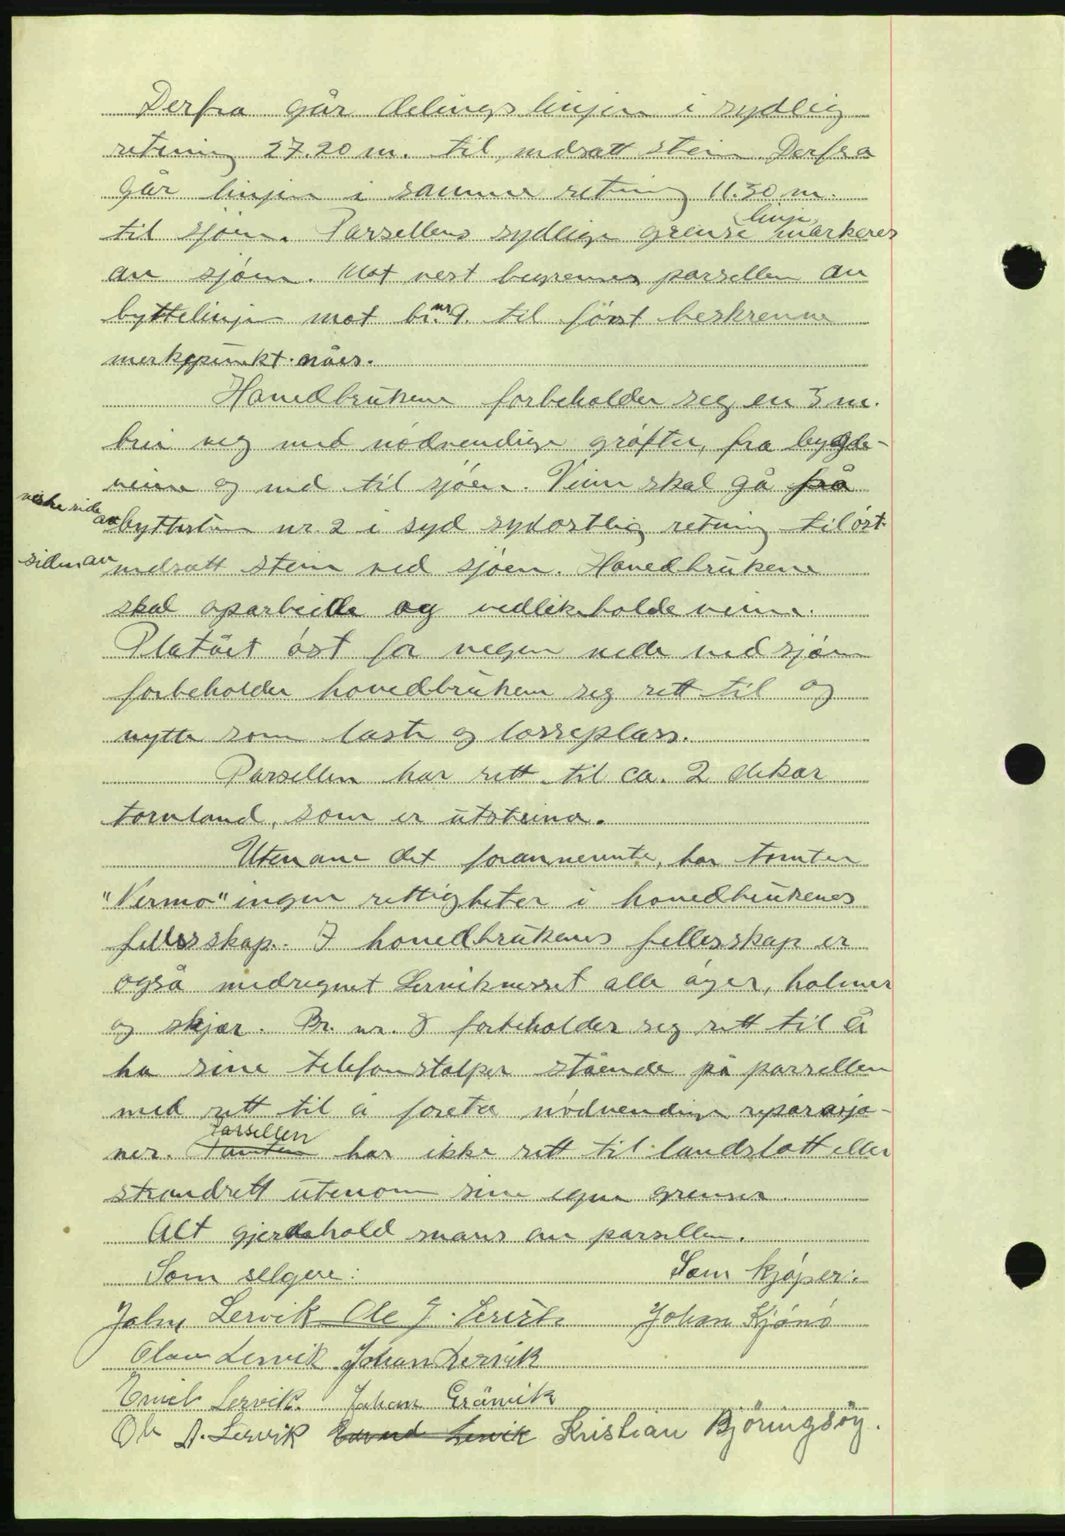 Derfra går delingslinjen i sydlig
retning 27.20 m. til nedsatt stein. Derfra
går linjen i samme retning 11.30 m.
til sjøen. Parsellens sydlige grense linje markeres
av sjøen. Mot vest begrenses parsellen av
byttelinje mot br. nr. 9. til først beskrevne
merkepunkt nåes.
Hovedbrukene forbeholder seg en 3 m.
brei veg med nødvendige grøfter, fra bygde-
veien og ned til sjøen. Veien skal gå frå
vestre side av
byttestein nr. 2 i syd sydostlig retning til øst-
siden av nedsatt stein ved sjøen. Hovedbrukene
skal oparbeide og vedlikeholde veien.
Platået øst for vegen nede ved sjøen
forbeholder hovedbruken seg rett til og
nytte som laste og losseplass.
Parsellen har rett til ca. 2 dekar
torvland, som er utsteina.
Utenom det forannevnte, har tomten
"Vermo" ingen rettigheter i hovedbrukenes
fellesskap. I hovedbrukenes fellesskap er
også medregnet Lerviknesset alle øyer, holmer
og skjær. Br. nr. 8 forbeholder seg rett til å
ha sine telefonstolper stående på parsellen
med rett til å foreta nødvendige reparasjo-
ner. Tomten Parsellen har ikke rett til landslott eller
strandrett utenom sine egne grenser.
Alt gjerdehold svares av parsellen.
Som selgere: Som kjøper:
John Lervik Ole J. Lervik Johan Kjønø
Olav Lervik Johan Lervik
Emil Lervik. Johan Grånvik
Ole A. Lervik Lervik Kristian Björingsöy.